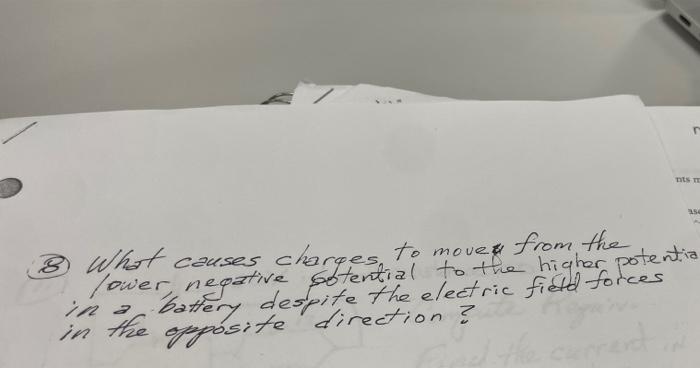 ⑧ What causes charges, to move from the
lower, negative potential to the higher potentia
in a battery despite the electric field forces
in the opposite direction?
nts
Find the current in